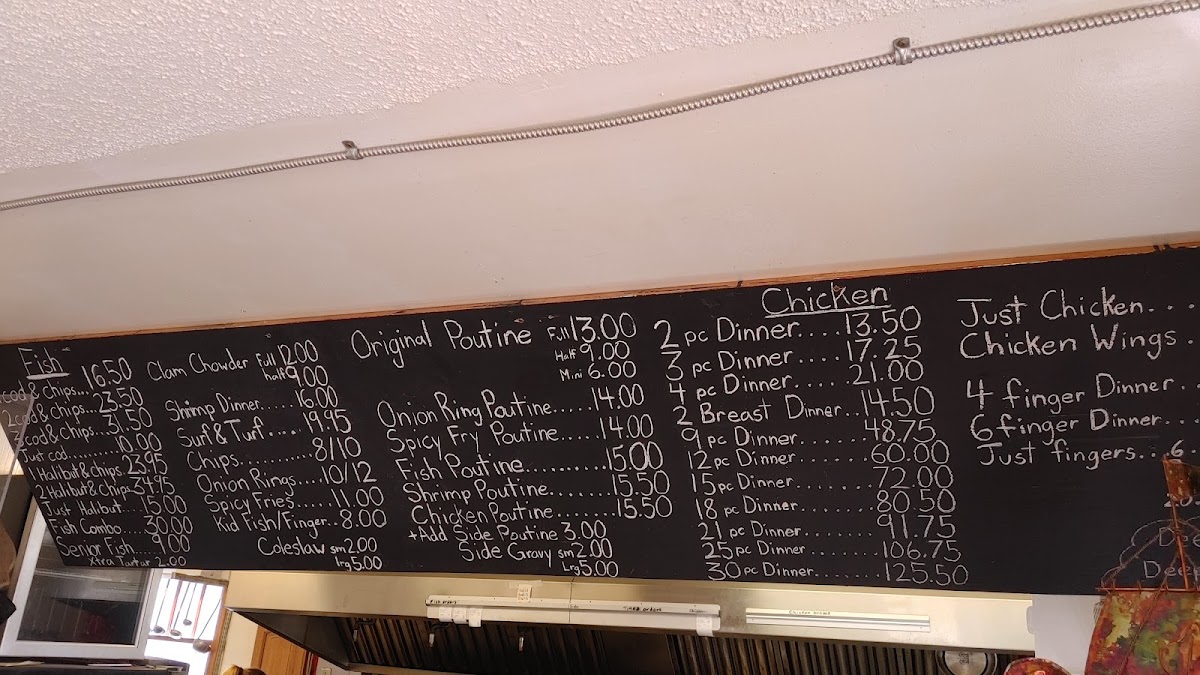 Fish
cod & Chips... 16.50
2 cod & chips... 23.50
cod & Chips.. 31.50
Just cod......... 10.00
1 Halibut & chips. 23.95
2 Halibut & Chips 34.95
Just Halibut.... 15.00
Fish Combo.... 30.00
Senior Fish.... 9.00
Xtra Tartar 2.00
Clam Chowder Full 12.00
half 9.00
Shrimp Dinner..... 16.00
Surf & Turf.... 19.95
Chips.......... 8/10
Onion Rings.... 10/12
Spicy Fries..... 11.00
Kid Fish/Finger.. 8.00
Coleslaw sm 2.00
lrg 5.00
Original Poutine Full 13.00
Half 9.00
Mini 6.00
Onion Ring Poutine..... 14.00
Spicy Fry Poutine...... 14.00
Fish Poutine........... 15.00
Shrimp Poutine....... 15.50
Chicken Poutine....... 15.50
+ Add Side Poutine 3.00
Side Gravy sm 2.00
Lrg 5.00
Chicken
2 pc Dinner.... 13.50
3 pc Dinner.... 17.25
4 pc Dinner.... 21.00
2 Breast Dinner.. 14.50
9 pc Dinner....... 48.75
12 pc Dinner....... 60.00
15 pc Dinner....... 72.00
18 pc Dinner....... 80.50
21 pc Dinner....... 91.75
25 pc Dinner....... 106.75
30 pc Dinner....... 125.50
Just Chicken...
Chicken Wings.
4 finger Dinner..
6 finger Dinner...
Just fingers... 6.
Deep